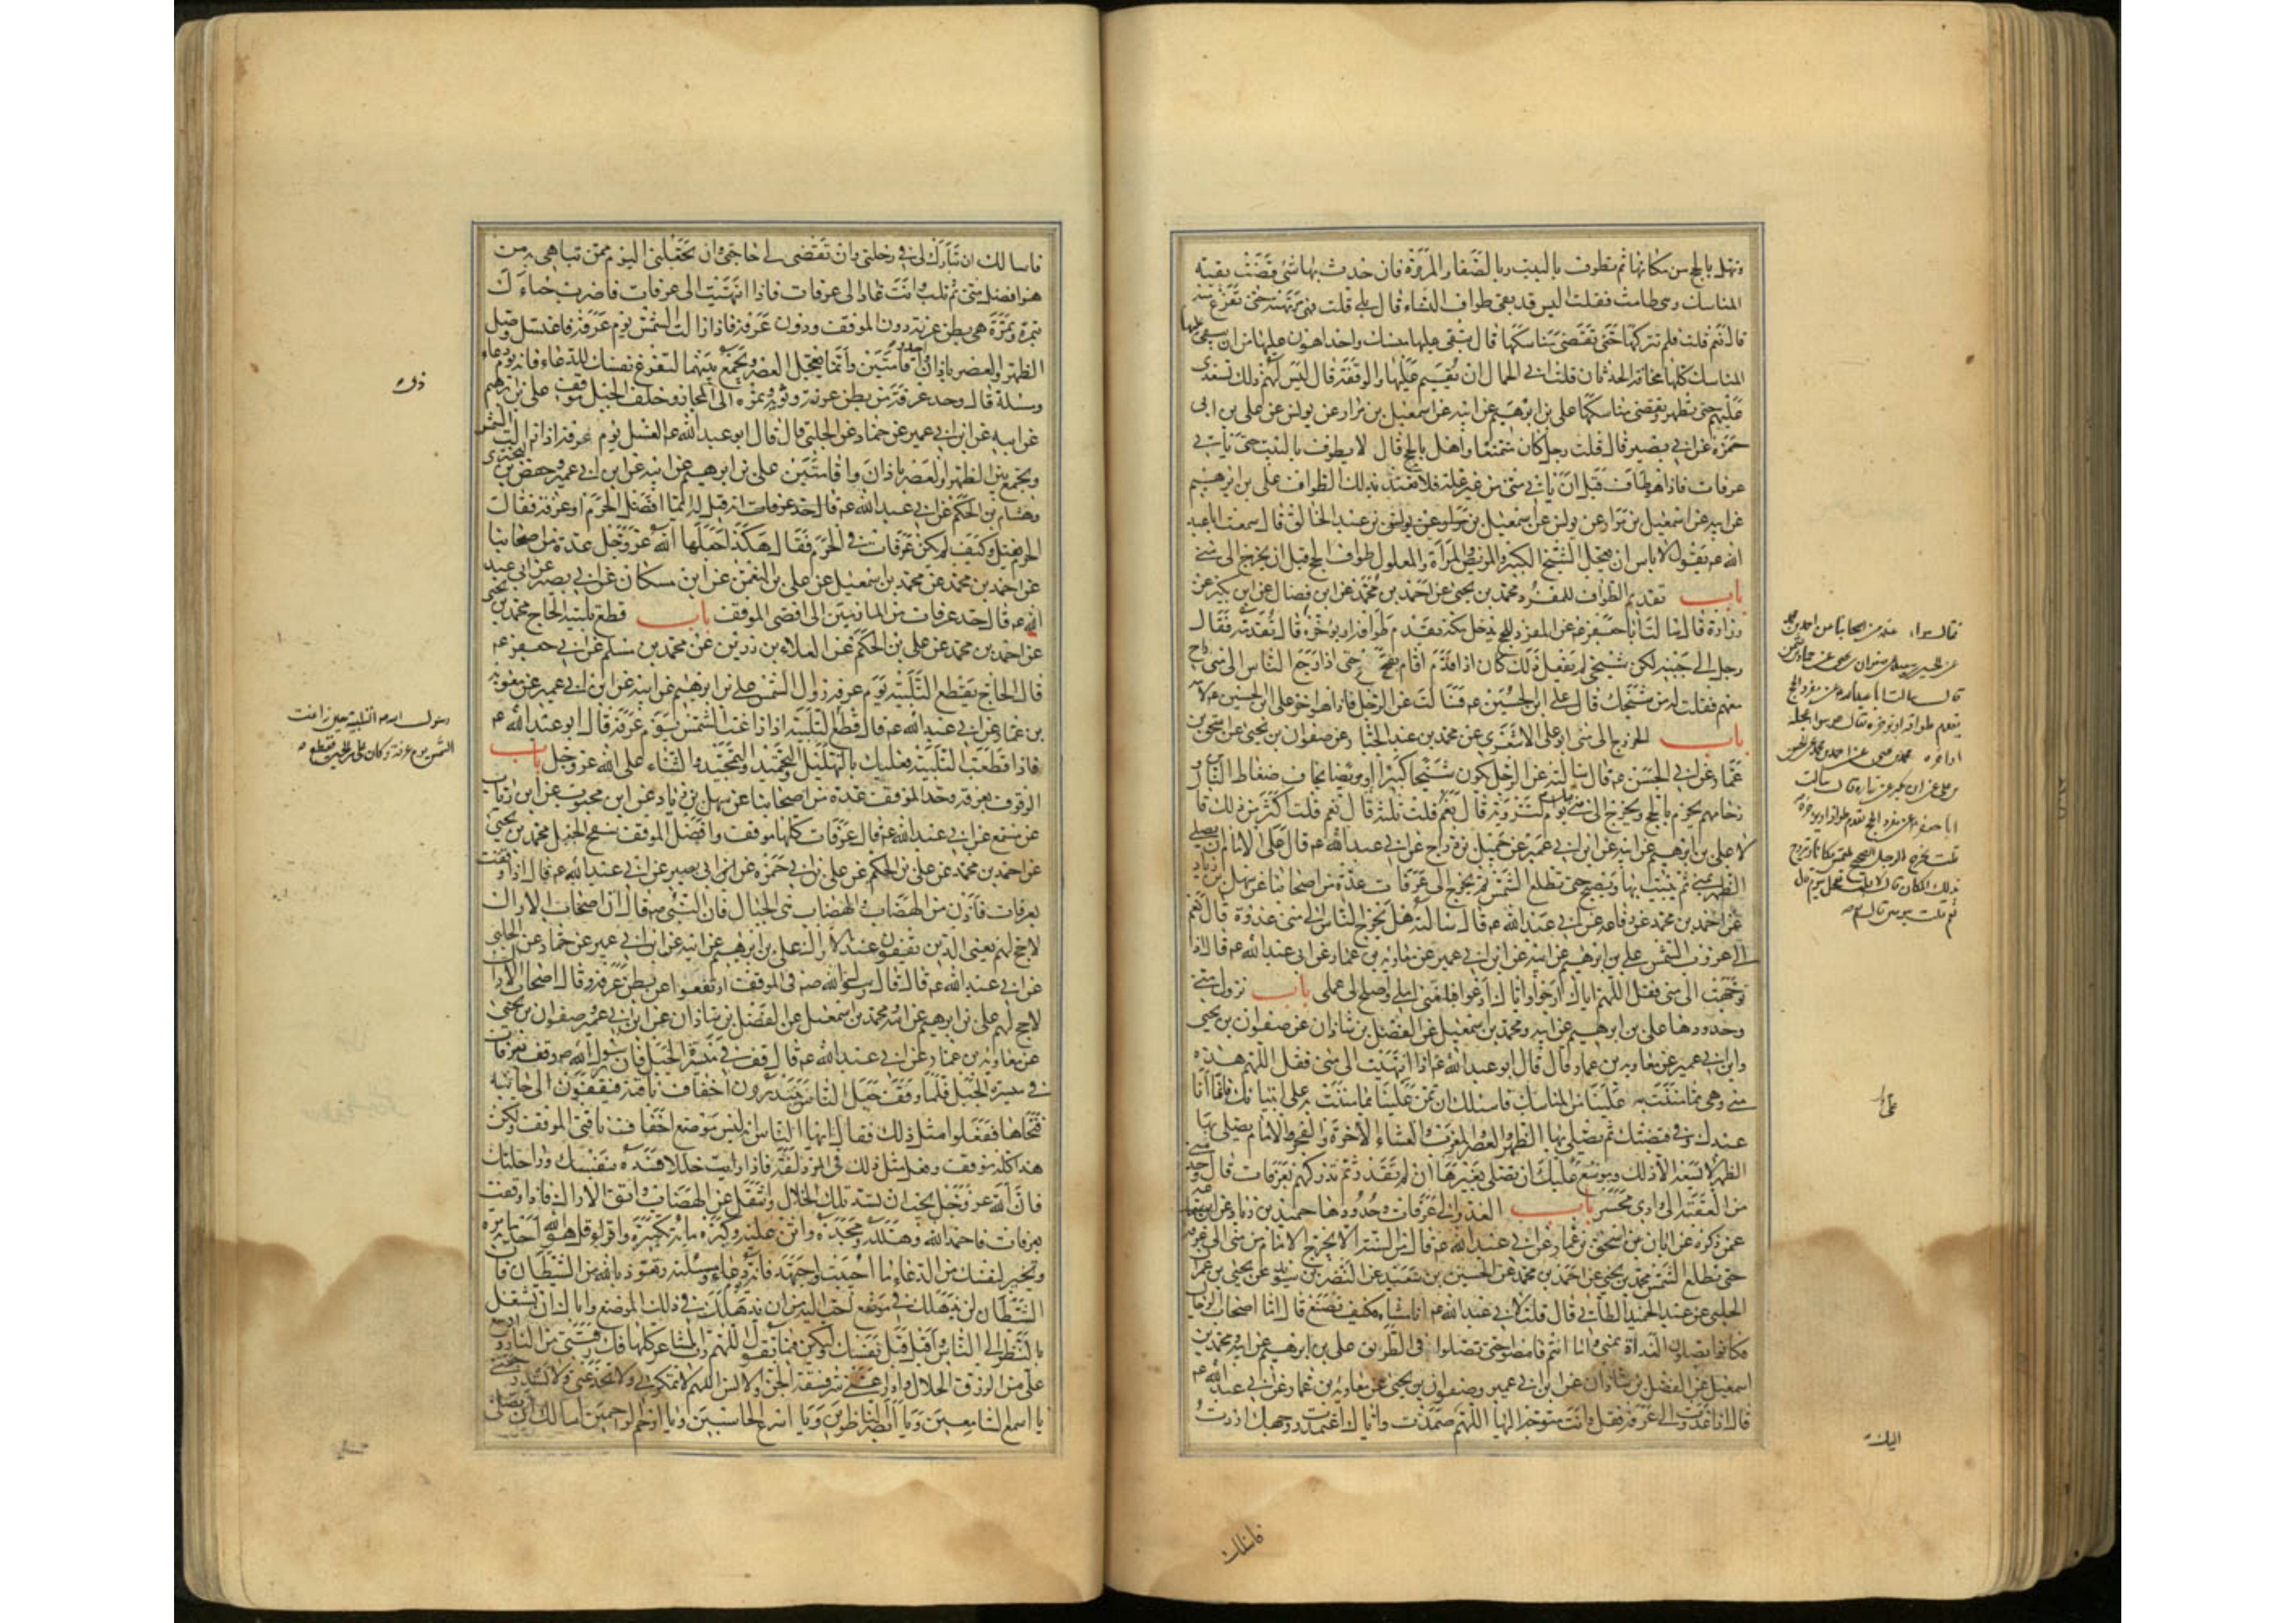 وتهل بالحج من مكانها ثم تطوف بالبيت وبالصفا والمروة فان حدث بها شئ قضت بقية
المناسك وهى طامث فقلت اليس قد بقى طواف النساء قال بلى قلت فهى مرتهنة حتى تفرغ منه
قال نعم قلت فلم تتركها حتى تقضى مناسكها قال يبقى عليها منسك واحد اهون عليها من ان يبقى عليها
المناسك كلها مخافة الحدثان قلت ابى الجمال ان يقيم عليها والرفقة قال ليس لهم ذلك تستعدى
عليهم حتى تطهر وتقضى مناسكها على بن ابرهيم عن ابيه عن اسمعيل بن مرار عن يونس عن على بن ابى
حمزة عن ابى بصير قال قلت رجل كان متمتعا واهل بالحج قال لا يطوف بالبيت حتى ياتى
عرفات فاذا هو طاف قبل ان ياتى منى من غير علة فلا يعتد بذلك الطواف على بن ابرهيم
عن ابيه عن اسمعيل بن مرار عن يونس عن اسمعيل بن عبد الخالق قال سمعت ابا عبد
الله عم يقول لا باس ان يعجل الشيخ الكبير والمريض والمرأة والمعلول طواف الحج قبل ان يخرج الى منى
باب تقديم الطواف للمفرد محمد بن يحيى عن احمد بن محمد عن ابن فضال عن ابن بكير عن
زرارة قال سالت ابا جعفر عم عن المفرد للحج يدخل مكة يقدم طوافه او يؤخره قال يقدمه فقال
رجل الى جنبه لكن شيخى لم يفعل ذلك كان اذا قدم اقام بفخ حتى اذا رجع الناس الى منى راح
معهم فقلت له من شيخك قال على بن الحسين عم فسالت عن الرجل فاذا هو اخو على بن الحسين عم لامه
باب الخروج الى منى ابو على الاشعرى عن محمد بن عبد الجبار عن صفوان بن يحيى عن اسحق بن
عمار عن ابى الحسن عم قال سالته عن الرجل يكون شيخا كبيرا او مريضا يخاف ضغاط الناس و
زحامهم يحرم بالحج ويخرج الى منى قبل يوم التروية قال نعم قلت ثلثة قال نعم قلت اكثر من ذلك قا
لا على بن ابرهيم عن ابيه عن ابن ابى عمير عن جميل بن دراج عن ابى عبد الله عم قال على الامام ان يصلى
الظهر بمنى ثم يبيت بها ويصبح حتى تطلع الشمس ثم يخرج الى عرفات عدة من اصحابنا عن سهل بن زياد
عن احمد بن محمد عن رفاعة عن ابى عبد الله عم قال سالته هل يخرج الناس الى منى غدوة قال نعم
الى غروب الشمس على بن ابرهيم عن ابيه عن ابن ابى عمير عن معاوية بن عمار عن ابى عبد الله عم قال اذا
توجهت الى منى فقل اللهم اياك ارجو واياك ادعو فبلغنى املى واصلح لى عملى باب نزول منى
وحدودها على بن ابرهيم عن ابيه ومحمد بن اسمعيل عن الفضل بن شاذان عن صفوان بن يحيى
وابن ابى عمير عن معاوية بن عمار قال قال ابو عبد الله عم اذا انتهيت الى منى فقل اللهم هذه
منى وهى مما مننت به علينا من المناسك فاسئلك ان تمن علينا بما مننت به على انبيائك فانما انا
عبدك وفى قبضتك ثم تصلى بها الظهر والعصر والمغرب والعشاء الاخرة والفجر والامام يصلى بها
الظهر لا يسعه الا ذلك وموسع عليك ان تصلى بغيرها ان لم تقدر ثم تدركهم بعرفات قال وحد منى
من العقبة الى وادى محسر باب الغدو الى عرفات وحدودها حميد بن زياد عن ابن سماعة
عمن ذكره عن ابان عن اسحق بن عمار عن ابى عبد الله عم قال من السنة الا يخرج الامام من منى الى عرفة
حتى تطلع الشمس محمد بن يحيى عن احمد بن محمد عن الحسين بن سعيد عن النضر بن سويد عن يحيى بن عمران
الحلبى عن عبد الحميد الطائى قال قلت لابى عبد الله عم انا مشاة فكيف نصنع قال اما اصحاب الرحال
فكانوا يصلون الغداة بمنى واما انتم فامضوا حتى تصلوا فى الطريق على بن ابرهيم عن ابيه ومحمد بن
اسمعيل عن الفضل بن شاذان عن ابن ابى عمير وصفوان بن يحيى عن معاوية بن عمار عن ابى عبد الله عم
قال اذا غدوت الى عرفة فقل وانت متوجه اليها اللهم اليك صمدت واياك اعتمدت ووجهك اردت
اليك
فاسئلك
فاسالك ان تبارك لى فى رحلتى وان تقضى لى حاجتى وان تجعلنى اليوم ممن تباهى به من
هو افضل منى ثم تلب وانت غاد الى عرفات فاذا انتهيت الى عرفات فاضرب خباءك
بنمرة ونمرة هى بطن عرنة دون الموقف ودون عرفة فاذا زالت الشمس يوم عرفة فاغتسل وصل
الظهر والعصر باذان واحد واقامتين وانما تعجل العصر وتجمع بينهما لتفرغ نفسك للدعاء فانه يوم دعاء
ومسئلة قال وحد عرفة من بطن عرنة وثوية ونمرة الى ذى المجاز وخلف الجبل موقف على بن ابرهيم
عن ابيه عن ابن ابى عمير عن حماد عن الحلبى قال قال ابو عبد الله عم الغسل يوم عرفة اذا زالت الشمس
وتجمع بين الظهر والعصر باذان واقامتين على بن ابرهيم عن ابيه عن ابن ابى عمير عن حفص بن البخترى
وهشام بن الحكم عن ابى عبد الله عم قال انه قيل له ايما افضل الحرم او عرفة فقال
الحرم فقيل وكيف لم يكن عرفات فى الحرم فقال هكذا جعلها الله عز وجل عدة من اصحابنا
عن احمد بن محمد عن محمد بن اسمعيل عن على بن النعمن عن ابن مسكان عن ابى بصير عن ابى عبد
الله عم قال حد عرفات من المازمين الى اقصى الموقف باب قطع تلبية الحاج محمد بن يحيى
عن احمد بن محمد عن على بن الحكم عن العلاء بن رزين عن محمد بن مسلم عن ابى جعفر عم
قال الحاج يقطع التلبية يوم عرفة زوال الشمس على بن ابرهيم عن ابيه عن ابن ابى عمير عن معوية
بن عمار عن ابى عبد الله عم قال قطع التلبية اذا زاغت الشمس يوم عرفة قال ابو عبد الله عم
رسول الله ص التلبية حين زاغت
الشمس يوم عرفة وكان على بن الحسين يقطع
فاذا قطعت التلبية فعليك بالتهليل والتحميد والتمجيد والثناء على الله عز وجل باب
الوقوف بعرفة وحد الموقف عدة من اصحابنا عن سهل بن زياد عن ابن محبوب عن ابن رئاب
عن مسمع عن ابى عبد الله عم قال عرفات كلها موقف وافضل الموقف سفح الجبل محمد بن يحيى
عن احمد بن محمد عن على بن الحكم عن على بن ابى حمزة عن ابى بصير عن ابى عبد الله عم قال اذا وقفت
بعرفات فادن من الهضاب والهضاب هى الجبال فان النبى ص قال ان اصحاب الاراك
لا حج لهم يعنى الذين يقفون عند الاراك على بن ابرهيم عن ابيه عن ابن ابى عمير عن حماد عن الحلبى
عن ابى عبد الله عم قال قال رسول الله ص فى الموقف ارتفعوا عن بطن عرنة وقال اصحاب الاراك
لا حج لهم على بن ابرهيم عن ابيه ومحمد بن اسمعيل عن الفضل بن شاذان عن ابن ابى عمير وصفوان بن يحيى
عن معاوية بن عمار عن ابى عبد الله عم قال قف فى ميسرة الجبل فان رسول الله ص وقف بعرفات
فى ميسرة الجبل فلما وقف جعل الناس يبتدرون اخفاف ناقته فيقفون الى جانبه
فنحاها ففعلوا مثل ذلك فقال ايها الناس انه ليس موضع اخفاف ناقتى الموقف ولكن
هذا كله موقف وفعل مثل ذلك فى المزدلفة فاذا رايت خللا فسده بنفسك وراحلتك
فان الله عز وجل يحب ان تسد تلك الخلال وانتقل عن الهضاب واتق الاراك فاذا وقفت
بعرفات فاحمد الله وهلله ومجده واثن عليه وكبره مائة تكبيرة واقرا قل هو الله احد مائة مرة
وتخير لنفسك من الدعاء ما احببت واجتهد فانه يوم دعاء ومسئلة وتعوذ بالله من الشيطان فان
الشيطان لن يذهلك فى موضع احب اليه من ان يذهلك فى ذلك الموضع واياك ان تشتغل
بالنظر الى الناس واقبل قبل نفسك وليكن فيما تقول اللهم رب المشاعر كلها فك رقبتى من النار واوسع
على من الرزق الحلال وادرا عنى شر فسقة الجن والانس اللهم لا تمكر بى ولا تخدعنى ولا تستدرجنى
يا اسمع السامعين ويا ابصر الناظرين ويا اسرع الحاسبين ويا ارحم الراحمين اسالك ان تصلى